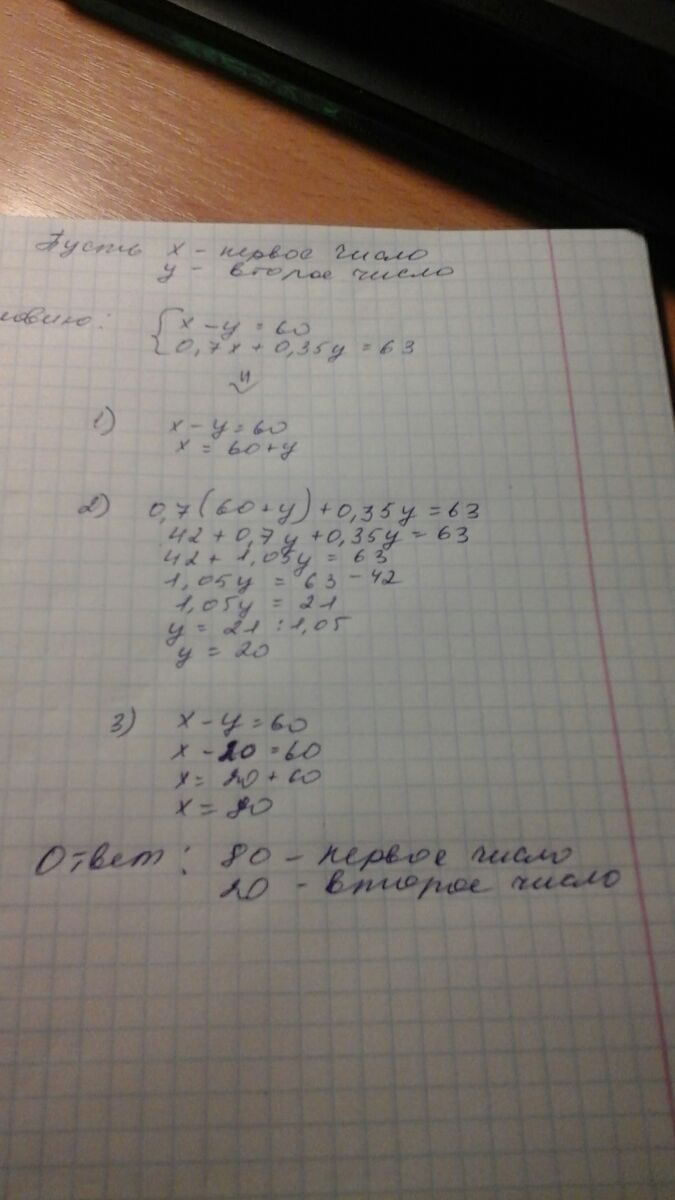 Пусть x - первое число
y - второе число
ловию: { x - y = 60
0,7x + 0,35y = 63
⇓
1) x - y = 60
x = 60 + y
2) 0,7(60 + y) + 0,35y = 63
42 + 0,7y + 0,35y = 63
42 + 1,05y = 63
1,05y = 63 - 42
1,05y = 21
y = 21 : 1,05
y = 20
3) x - y = 60
x - 20 = 60
x = 20 + 60
x = 80
Ответ: 80 - первое число
20 - второе число